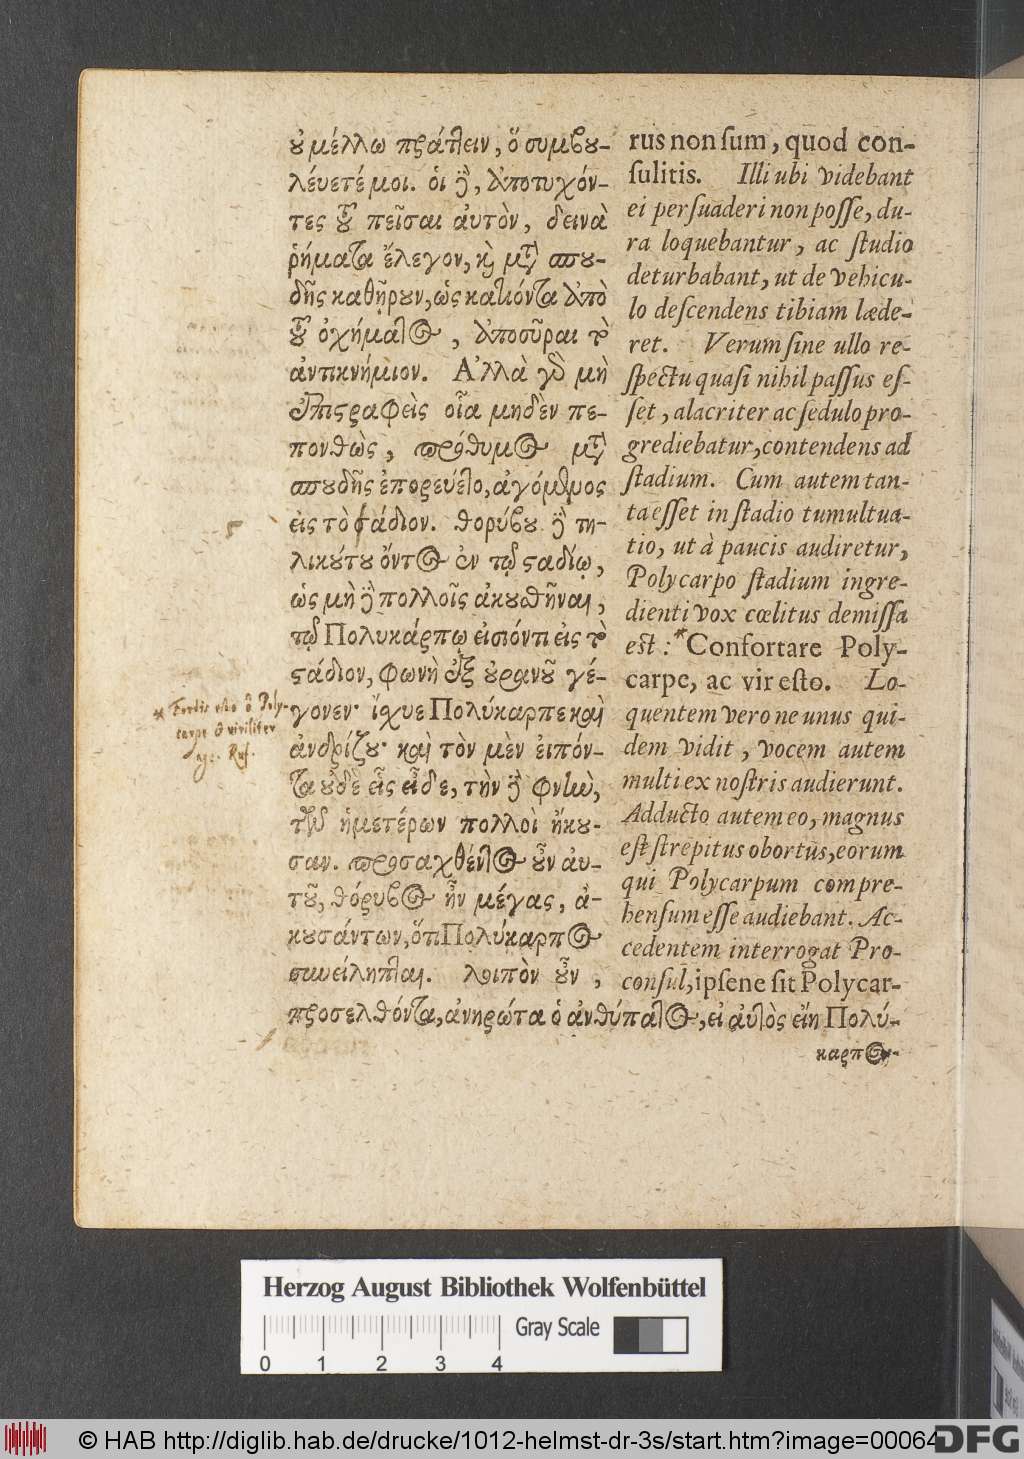 ȣ μέλλω πράτλειν, ὅ συμβȣ-
λέυετέ μοι. ὁι ἢ, ἀποτυχόν-
τες τȣ͂ πεῖσαι ἀυτὸν, δεινὰ
ῥήματα ἔλεγον, κὶ μτ̀ σπȣ-
δῆς καθῆρȣν, ὡς κατιόντα ἀπὸ
τȣ͂ ὀχήματος, ἀποσῦραι τὸ
ἀντικνήμιον. Ἀλλὰ γδ̀ μὴ
ἐπιςραφεὶς οἷα μηδὲν πε-
πονθὼς, πρόθυμος μτ̀
σπȣδῆς ἐπορεύετο, ἀγόμενος
ἐις τὸ ςάδιον. θορύβȣ ἢ τη-
λικȣ́τȣ ὄντος ἐν τῷ ςαδίῳ,
ὡς μὴ ἢ πολλοῖς ἀκȣσθῆναι,
τῷ Πολυκάρπῳ ἐισιόντι ἐις τὸ
ςάδιον, φωνὴ ἐξ ȣ̓ρανȣ͂ γέ-
γονεν· ἴχυε Πολύκαρπε καὶ
ἀνδρίζȣ· καὶ τὸν μὲν ἐιπόν-
τα ȣ̓δὲ εἷς εἶδε, τὴν ἢ φνὼ,
τῶν ἡμετέρων πολλοὶ ἤκȣ-
σαν. προσαχθέντος ȣ͂ν ἀυ-
τȣ͂, θόρυβος ἦν μέγας, ἀ-
κȣσάντων, ὅτι Πολύκαρπος
συνείληπται. λοιπὸν ȣ͂ν,
προσελθόντα, ἀνηρώτα ὁ ἀνθύπατος, εἰ ἀυτὸς εἴη Πολύ-
καρπος.
rus non sum, quod con-
sulitis. Illi ubi videbant
ei persuaderi non posse, du-
ra loquebantur, ac studio
deturbabant, ut de vehicu-
lo descendens tibiam læde-
ret. Verum sine ullo re-
spectu quasi nihil passus es-
set, alacriter ac sedulo pro-
grediebatur, contendens ad
stadium. Cum autem tan-
ta esset in stadio tumultua-
tio, ut à paucis audiretur,
Polycarpo stadium ingre-
dienti vox cœlitus demissa
est: * Confortare Poly-
carpe, ac vir esto. Lo-
quentem vero ne unus qui-
dem vidit, vocem autem
multi ex nostris audierunt.
Adducto autem eo, magnus
est strepitus obortus, eorum
qui Polycarpum compre-
hensum esse audiebant. Ac-
cedentem interrogat Pro-
consul, ipsene sit Polycar-
5
* Fortis esto ô Poly-
carpe & viriliter
age. Ruf.
Herzog August Bibliothek Wolfenbüttel
Gray Scale
0 1 2 3 4
© HAB http://diglib.hab.de/drucke/1012-helmst-dr-3s/start.htm?image=00064
DFG